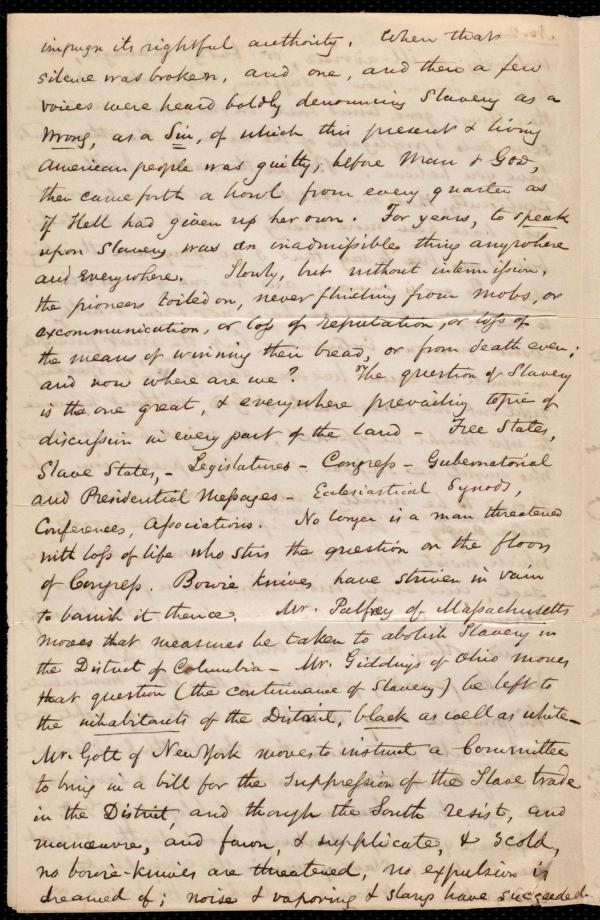 impugn its rightful authority. When that
silence was broken, and one, and then a few
voices were heard boldly denouncing Slavery as a
Wrong, as a Sin, of which this present & living
American people was guilty, before Man & God,
then came forth a howl from every quarter as
if Hell had given up her own. For years, to speak
upon Slavery was an inadmissible thing anywhere
and everywhere. Slowly, but without intermission,
the pioneers toiled on, never flinching from mobs, or
excommunication, or loss of reputation, or loss of
the means of winning their bread, or from death even;
and now where are we? The question of Slavery
is the one great, & everywhere prevailing topic of
discussion in every part of the land - Free States,
Slave States, - Legislatures - Congress - Gubernatorial
and Presidential Messages - Ecclesiastical Synods,
Conferences, Associations. No longer is a man threatened
with loss of life who stirs the question on the floors
of Congress. Bowie knives have striven in vain
to banish it thence. Mr. Palfrey of Massachusetts
moves that measures be taken to abolish Slavery in
the District of Columbia - Mr. Giddings of Ohio moves
that question (the continuance of Slavery) be left to
the inhabitants of the District, black as well as white -
Mr. Gott of New York moves to instruct a Committee
to bring in a bill for the suppression of the Slave trade
in the District, and though the South resist, and
manœuvre, and fawn, & supplicate, & scold,
no bowie-knives are threatened, no expulsion is
dreamed of; noise & vaporing & slang have succeeded.